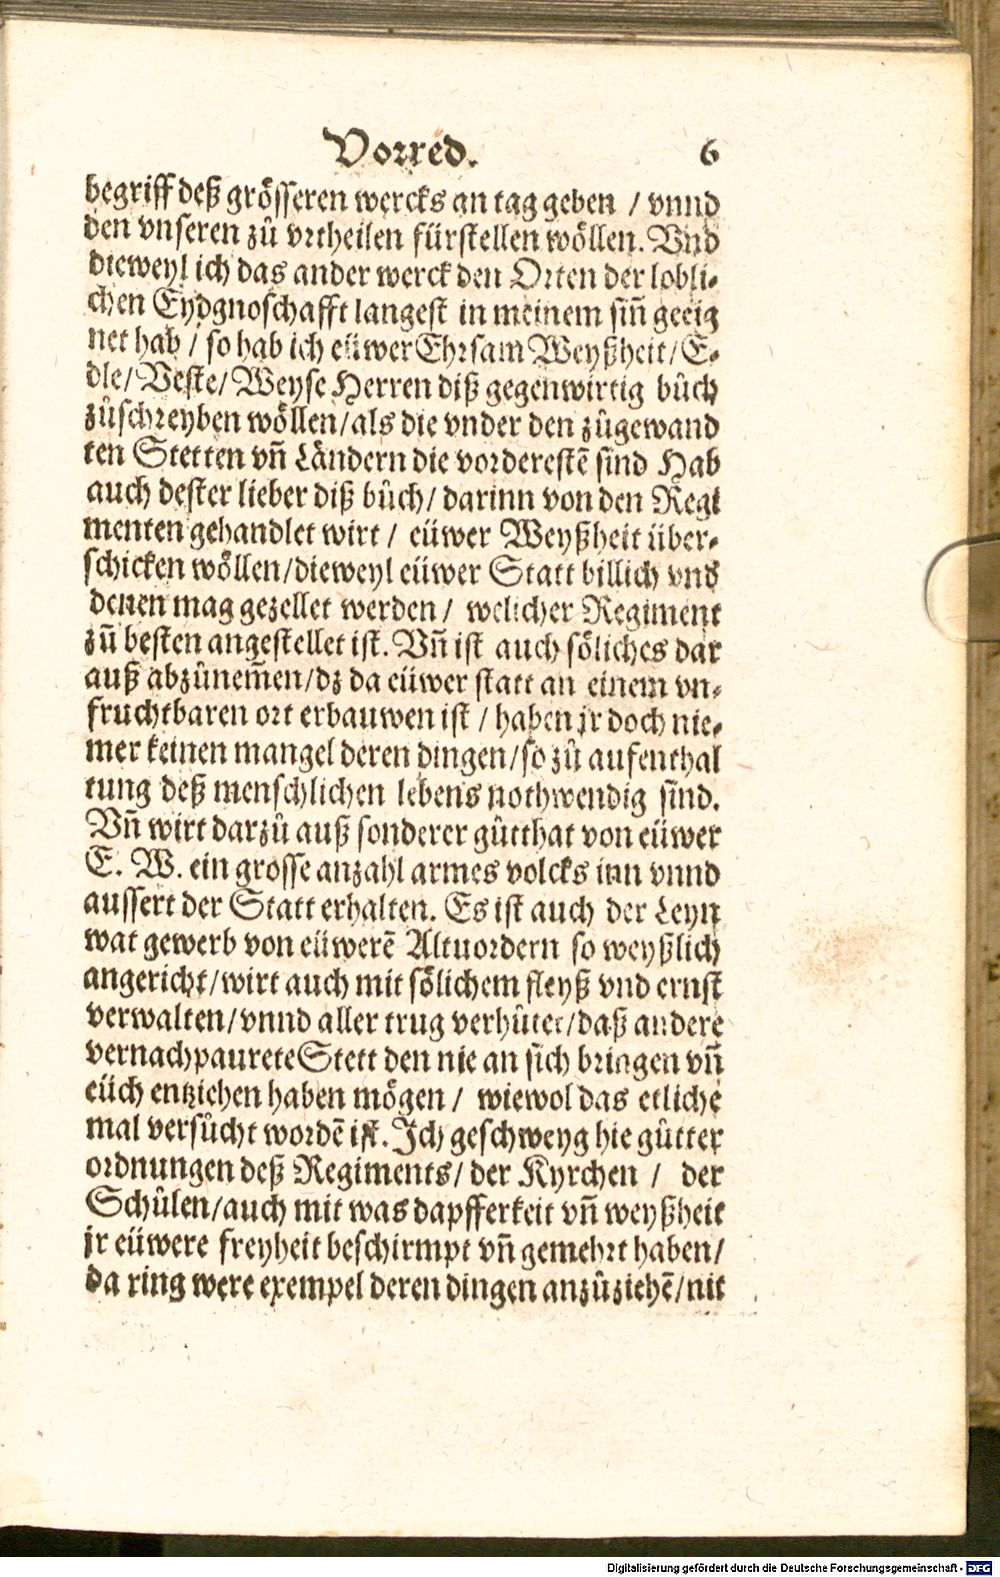 Vorred. 6
begriff deß grösseren wercks an tag geben / vnnd
den vnseren zů vrtheilen fürstellen wöllen. Vnd
dieweyl ich das ander werck den Orten der lobli-
chen Eydgnoschafft langest in meinem siñ geeig
net hab / so hab ich eüwer Ehrsam Weyßheit / E-
dle / Veste / Weyse Herren diß gegenwirtig bůch
zůschreyben wöllen / als die vnder den zůgewand
ten Stetten vñ Ländern die vorderestẽ sind Hab
auch dester lieber diß bůch / darinn von den Regi
menten gehandlet wirt / eüwer Weyßheit über-
schicken wöllen / dieweyl eüwer Statt billich vnd
denen mag gezellet werden / welicher Regiment
zů besten angestellet ist. Vñ ist auch söliches dar
auß abzůnem̃en / dz da eüwer statt an einem vn-
fruchtbaren ort erbauwen ist / haben jr doch nie-
mer keinen mangel deren dingen / so zů aufenthal
tung deß menschlichen lebens nothwendig sind.
Vñ wirt darzů auß sonderer gůtthat von eüwer
E. W. ein grosse anzahl armes volcks inn vnnd
aussert der Statt erhalten. Es ist auch der Leyn
wat gewerb von eüwerẽ Altuordern so weyßlich
angericht / wirt auch mit sölichem fleyß vnd ernst
verwalten / vnnd aller trug verhůtet / daß andere
vernachpaurete Stett den nie an sich bringen vñ
eüch entziehen haben mögen / wiewol das etliche
mal versůcht wordẽ ist. Jch geschweyg hie gůtter
ordnungen deß Regiments / der Kyrchen / der
Schůlen / auch mit was dapfferkeit vñ weyßheit
jr eüwere freyheit beschirmpt vñ gemehrt haben /
da ring were exempel deren dingen anzůziehẽ / nit
Digitalisierung gefördert durch die Deutsche Forschungsgemeinschaft - DFG